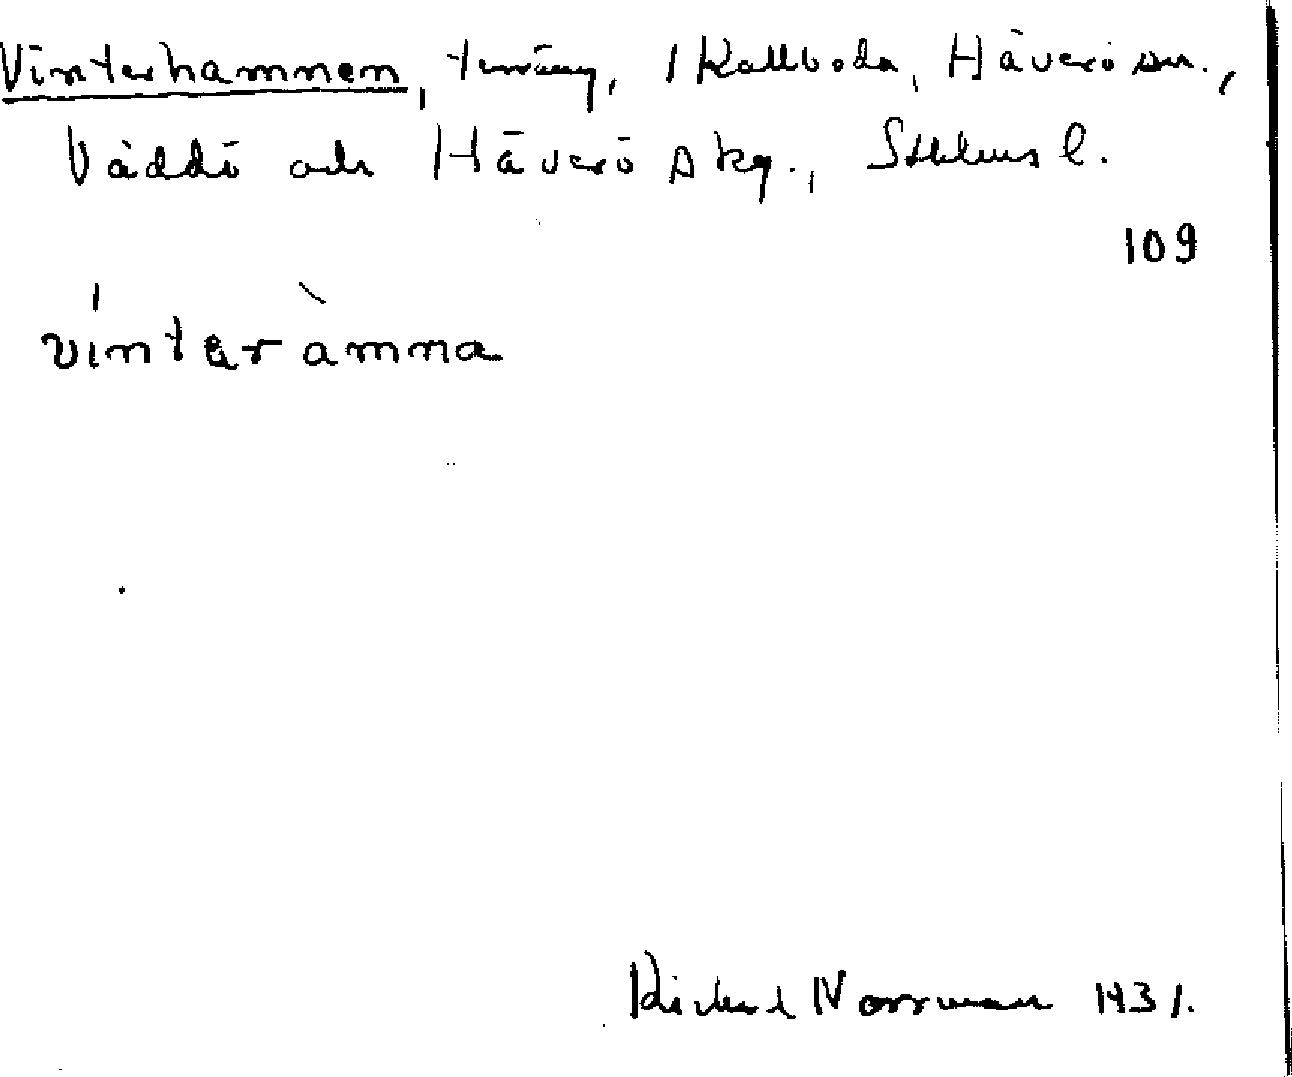 Vinterhamnen, terräng, 1 Kallboda, Häverö sn.,
Väddö och Häverö skg., Sthlms l.
109
vinteràmna
Richard Norrman 1931.